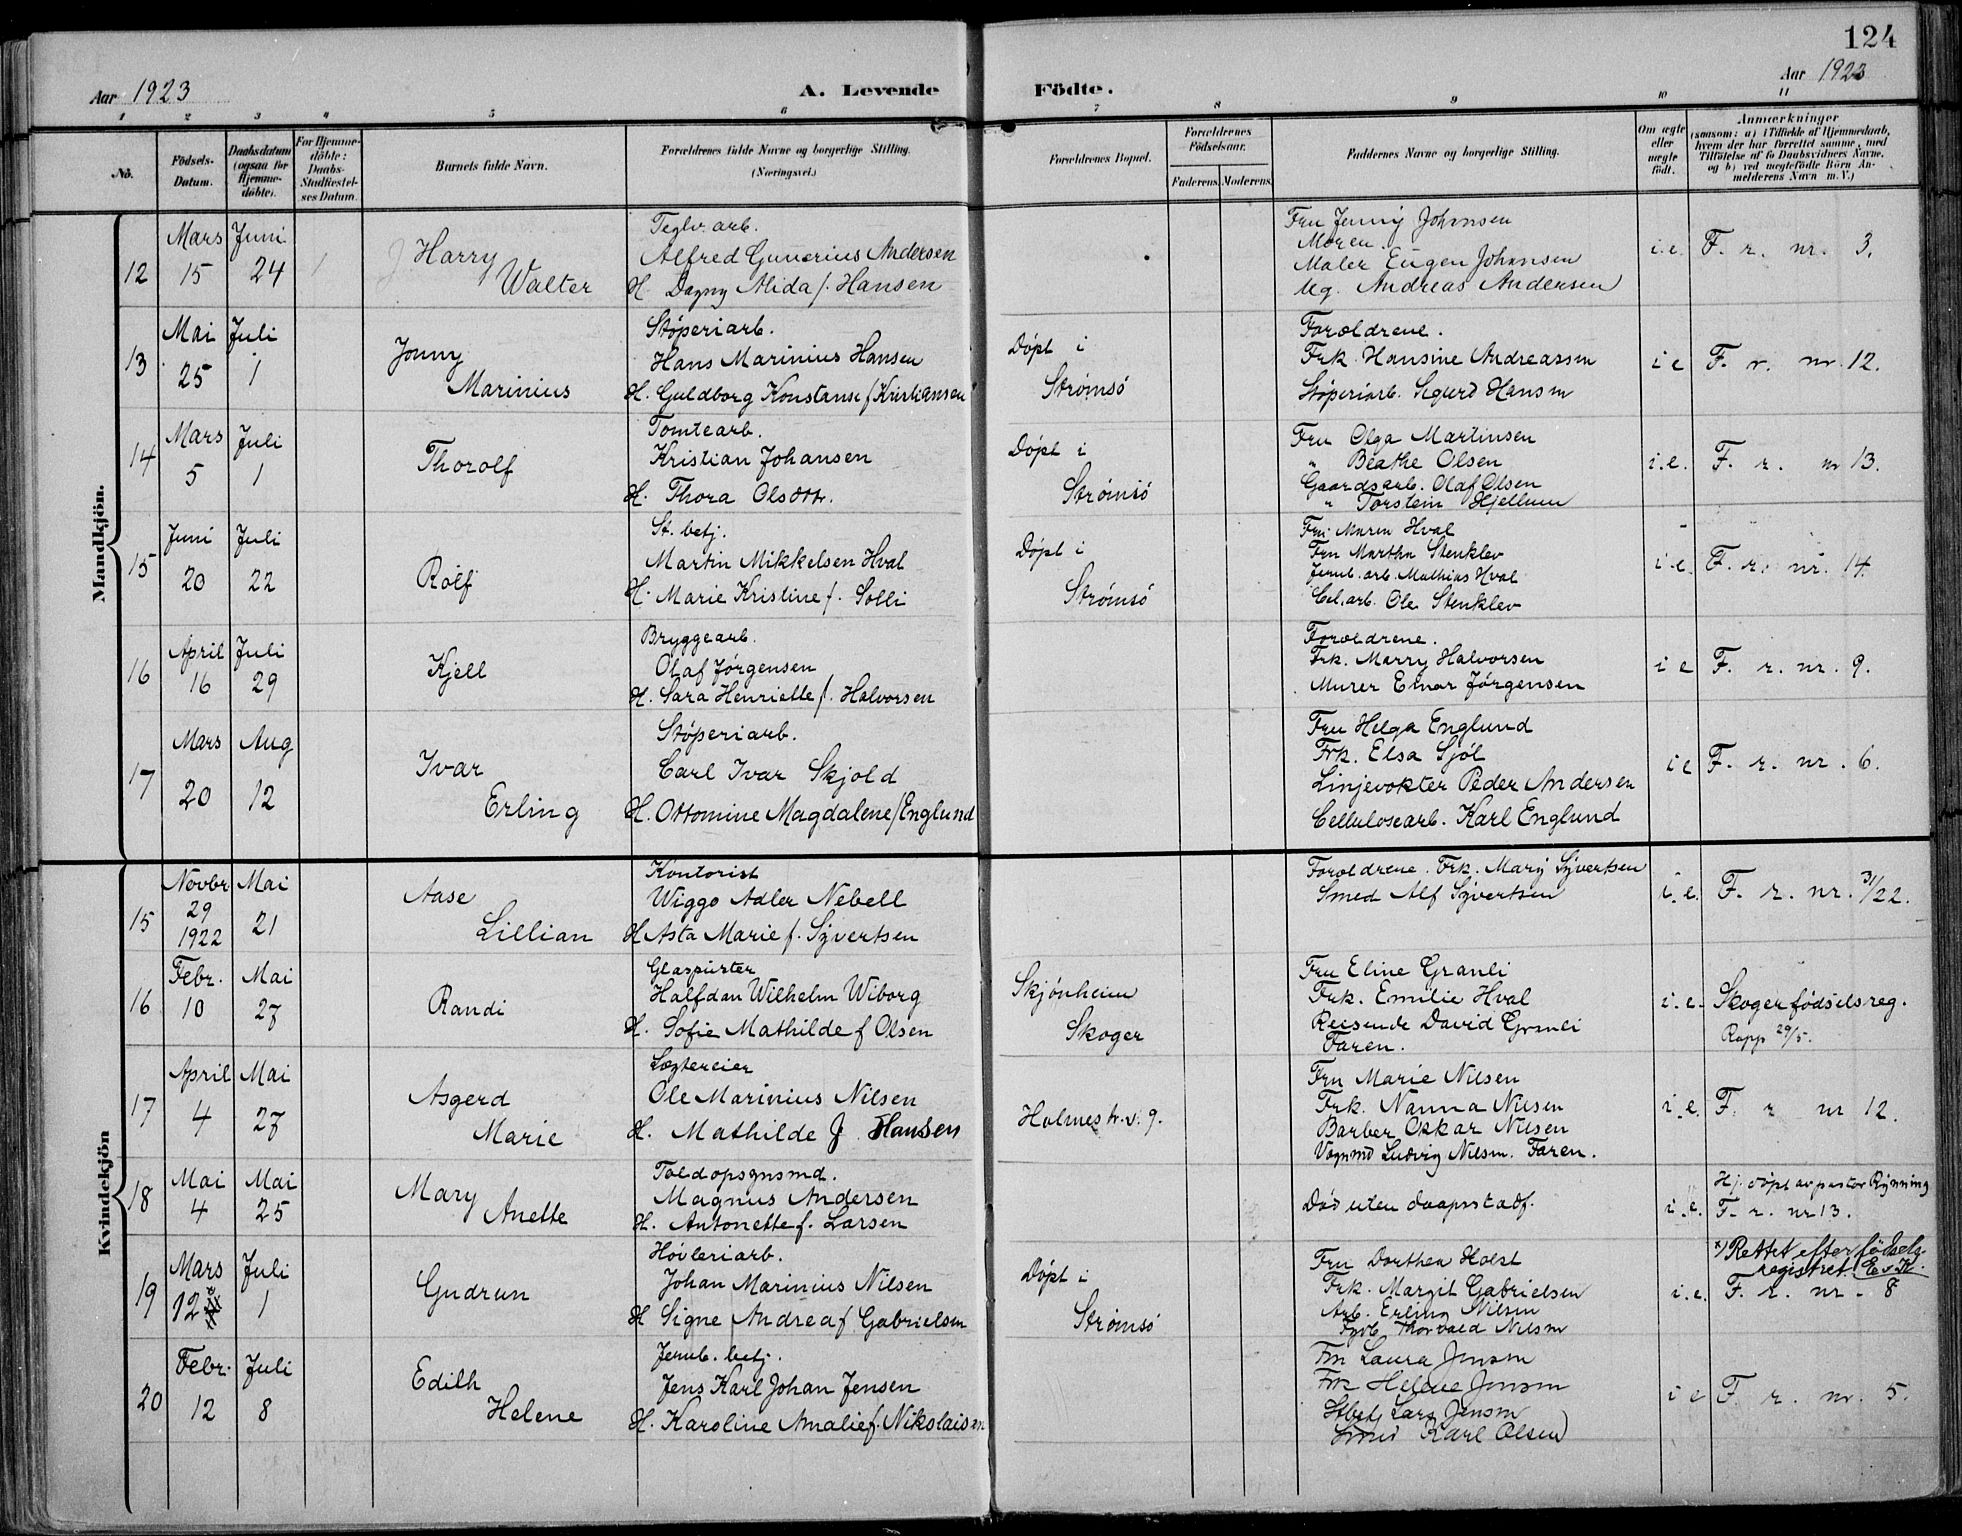 124
Aar 1923
A. Levende
Födte.
Aar 1923
1 2 3 4 5 6 7 8 9 10 11
No.
Födsels-Datum.
Daabsdatum (ogsaa for Hjemme-döbte).
For Hjemme-döbte: Daabs-Stadfæstel-ses Datum.
Barnets fulde Navn.
Forældrenes fulde Navne og borgerlige Stilling.
(Næringsvei.)
Forældrenes Bopæl.
Forældrenes Födselsaar.
Faderens. Moderens.
Faddernes Navne og borgerlige Stilling.
Om ægte eller uægte födt.
Anmærkninger
(saasom: a) i Tilfælde af Hjemmedaab, hvem der har forrettet samme, med Tilföielse af to Daabsvidners Navne, og b) ved uægtefödte Börn An-melderens Navn m. V.)
Mandkjön.
12
Mars 15
Juni 24
Harry
Walter
Teglv. arb.
Alfred Gunerius Andersen
H. Dagny Alida f. Hansen
Fru Jenny Johnsen
Moren.
Maler Eugen Johnsen
Ug. Andreas Andersen
i.e.
F. r. nr. 3.
13
Mai 25
Juli 1
Jonny
Marinius
Støperiarb.
Hans Marinius Hansen
H. Guldborg Konstanse f Kristiansen
Döpt i
Strømsö
Forældrene.
Frk. Hansine Andreassen
Støperiarb. Sigurd Hansen
i e
F. r. nr. 12.
14
Mars 5
Juli 1
Thorolf
Tomtearb.
Kristian Johansen
H. Thora Olsdtr.
Döpt i
Strømsö
Fru Olga Martinsen
" Beathe Olsen
Gaardsarb. Olaf Olsen
" Torstein Hjellum
i.e.
F. r. nr 13.
15
Juni 20
Juli 22
Rolf
St. betj.
Martin Mikkelsen Hval
H. Marie Kristine f. Solli
Döpt i
Strømsö
Fru Maren Hval
Fru Martha Stenklev
Jernb. arb. Mathias Hval
Cel. arb. Ole Stenklev
i.e.
F. r. nr. 14.
16
April 16
Juli 29
Kjell
Bryggearb.
Olaf Jørgensen
H. Sara Henriette f. Halvorsen
Forældrene.
Frk. Marry Halvorsen
Murer Einar Jørgensen
i e
F. r. nr. 9.
17
Mars 20
Aug 12
Ivar
Erling
Støperiarb.
Carl Ivar Skjold
H. Ottomine Magdalene f Englund
Fru Helga Englund
Frk. Elsa Sjöl
Linjevokter Peder Andersen
Cellulosearb. Karl Englund
i e
F. r. nr. 6.
Kvindekjön
15
Novbr 29 1922
Mai 21
Aase
Lillian
Kontorist
Wiggo Adler Nebell
H Asta Marie f. Syvertsen
Forældrene. Frk. Mary Syvertsen
Smed Alf Syvertsen
i.e.
F. r. nr. 31/22.
16
Febr. 10
Mai 27
Randi
Glaspuster
Halfdan Wilhelm Wiborg
H. Sofie Mathilde f Olsen
Skjönheim
Skoger
Fru Eline Granli
Frk. Emilie Hval
Reisende David Granli
Faren.
i.e.
Skoger fødselsreg.
Rapp 29/5.
17
April 4
Mai 27
Asgerd
Marie
Lægtereier
Ole Marinius Nilsen
H. Mathilde J Hansen
Holmestr.v. 9.
Fru Marie Nilsen
Frk. Nanna Nilsen
Barber Oskar Nilsen
Vognmd Ludvig Nilsen. Faren.
i.e.
F. r nr 12.
18
Mai 4
Mai 25
Mary
Anette
Toldopsynsmd.
Magnus Andersen
H. Antonette f. Larsen
Död uten daapsstadf.
i.e.
Hj. döpt av pastor Rynning
F. r. nr 13.
19
Mars 12
Juli 1
Gudrun
Høvleriarb.
Johan Marinius Nilsen
H Signe Andrea f Gabrielsen
Döpt i
Strømsö
Fru Dorthea Holst
Frk. Margit Gabrielsen
Arb. Erling Nilsen
Thorvald Nilsen
i.e.
x) Rettet efter fødsels-
registret.
F. r. nr. 8
20
Febr. 12
Juli 8
Edith
Helene
Jernb. betj.
Jens Karl Johan Jensen
H. Karoline Amalie f. Nikolaisen
Fru Laura Jensen
Frk Helene Jensen
Stbetj Lars Jensen
Smed Karl Olsen
i e
F. r. nr. 5.